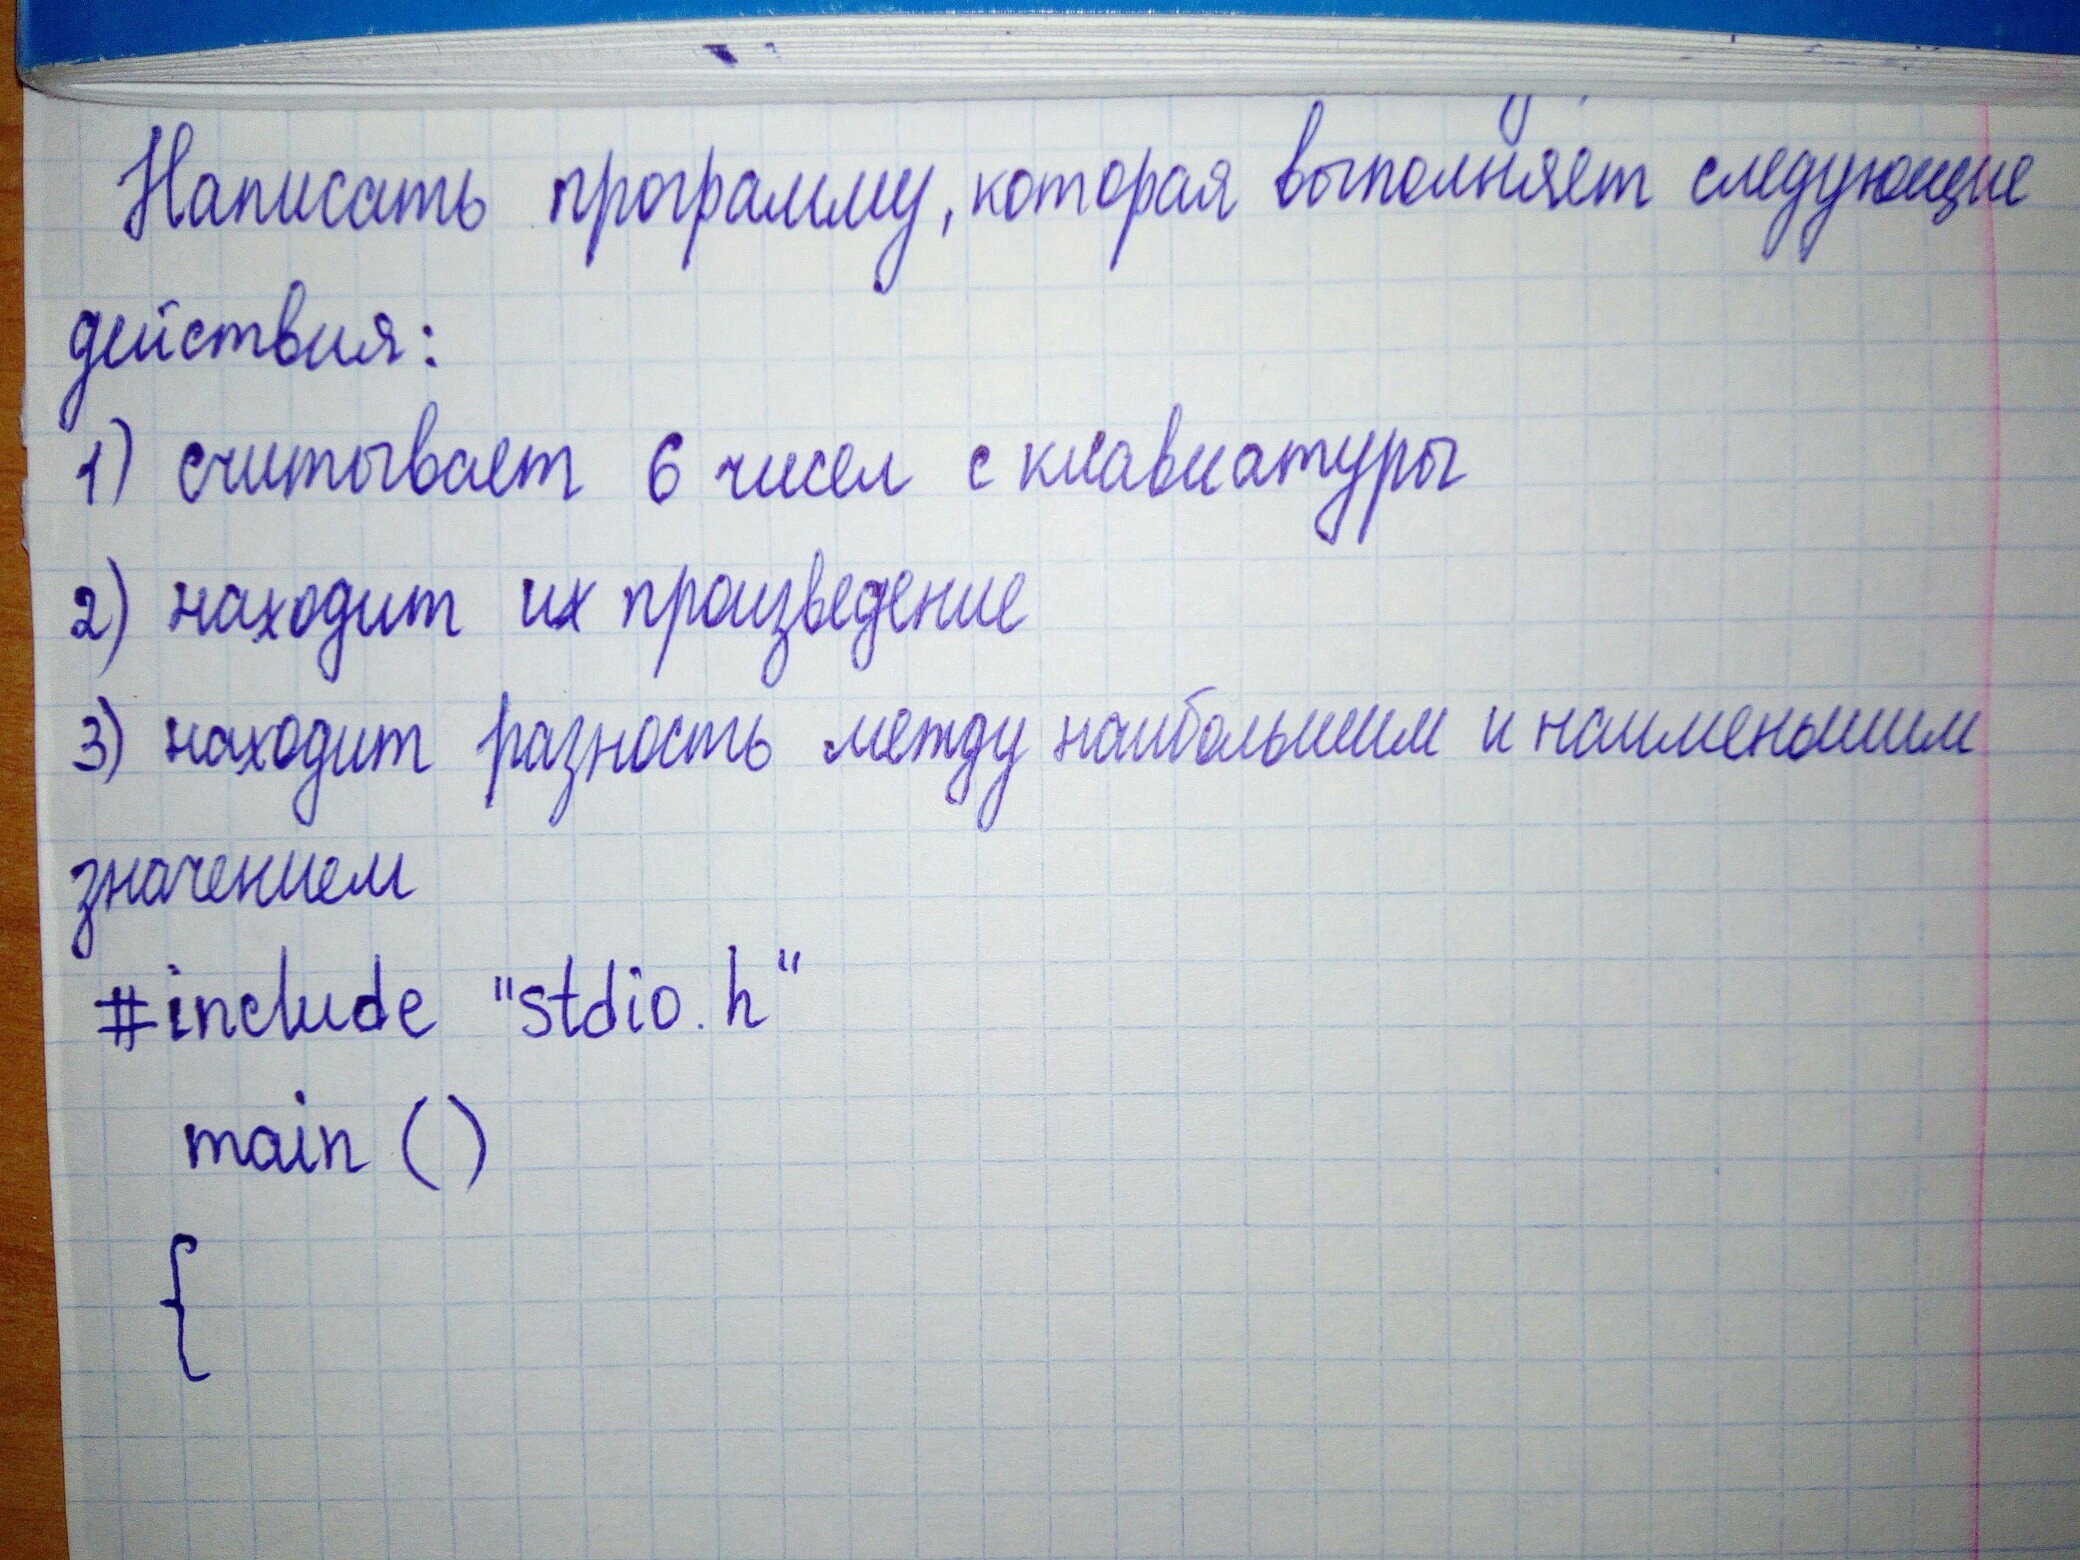 Написать программу, которая выполняет следующие
действия:
1) считывает 6 чисел с клавиатуры
2) находит их произведение
3) находит разность между наибольшим и наименьшим
значением
#include "stdio.h"
main ()
{